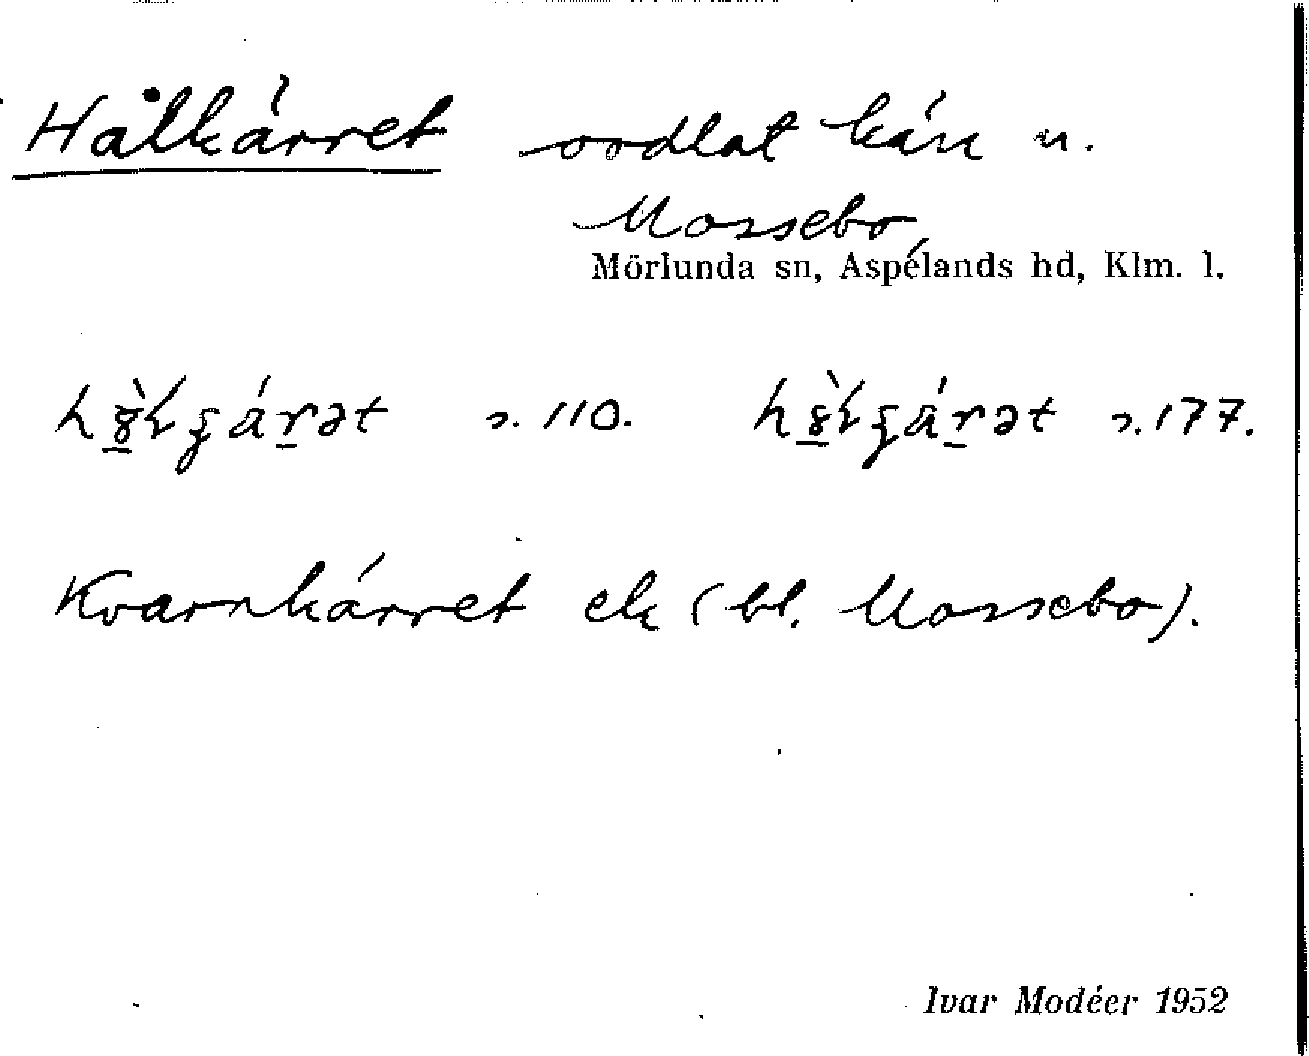 Hålkärret oodlat kärr n.
Mossebo,
Mörlunda sn, Aspelands hd, Klm. l.
s. 110. s. 177.
Kvarnkärret ek (bl. Mossebo).
Ivar Modéer 1952